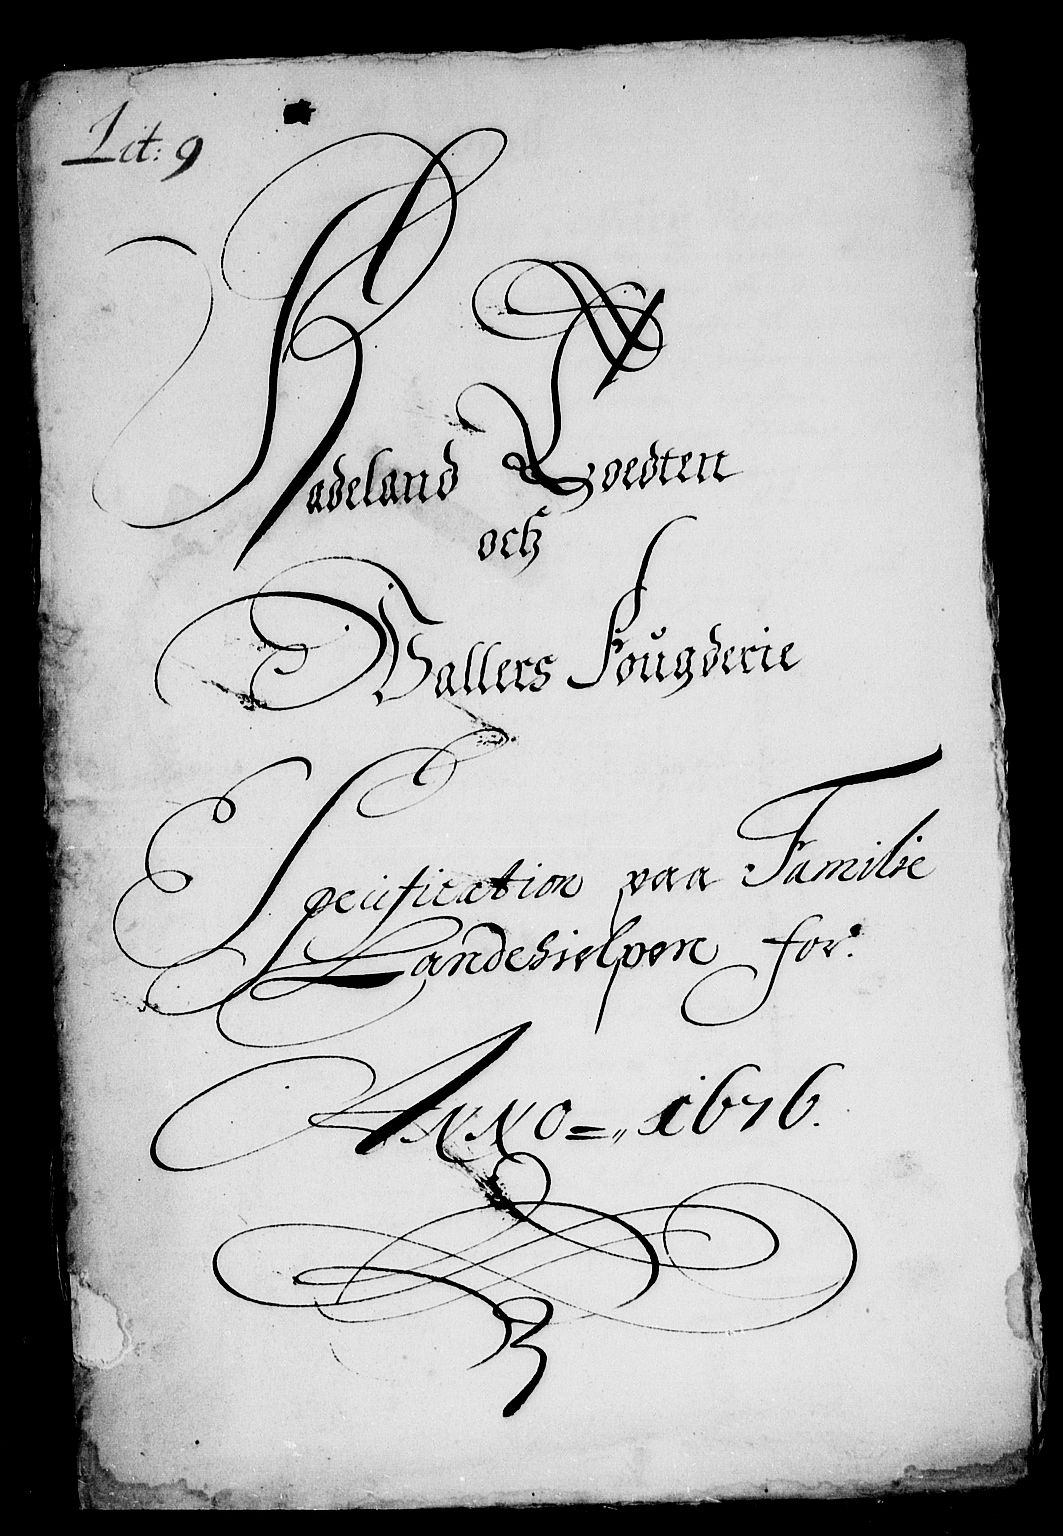 Lit: 9
Hadeland Toedten
och
Vallers Fougderie
Specification paa Familie
Landehielpen for:
ANNO =,, 1676.